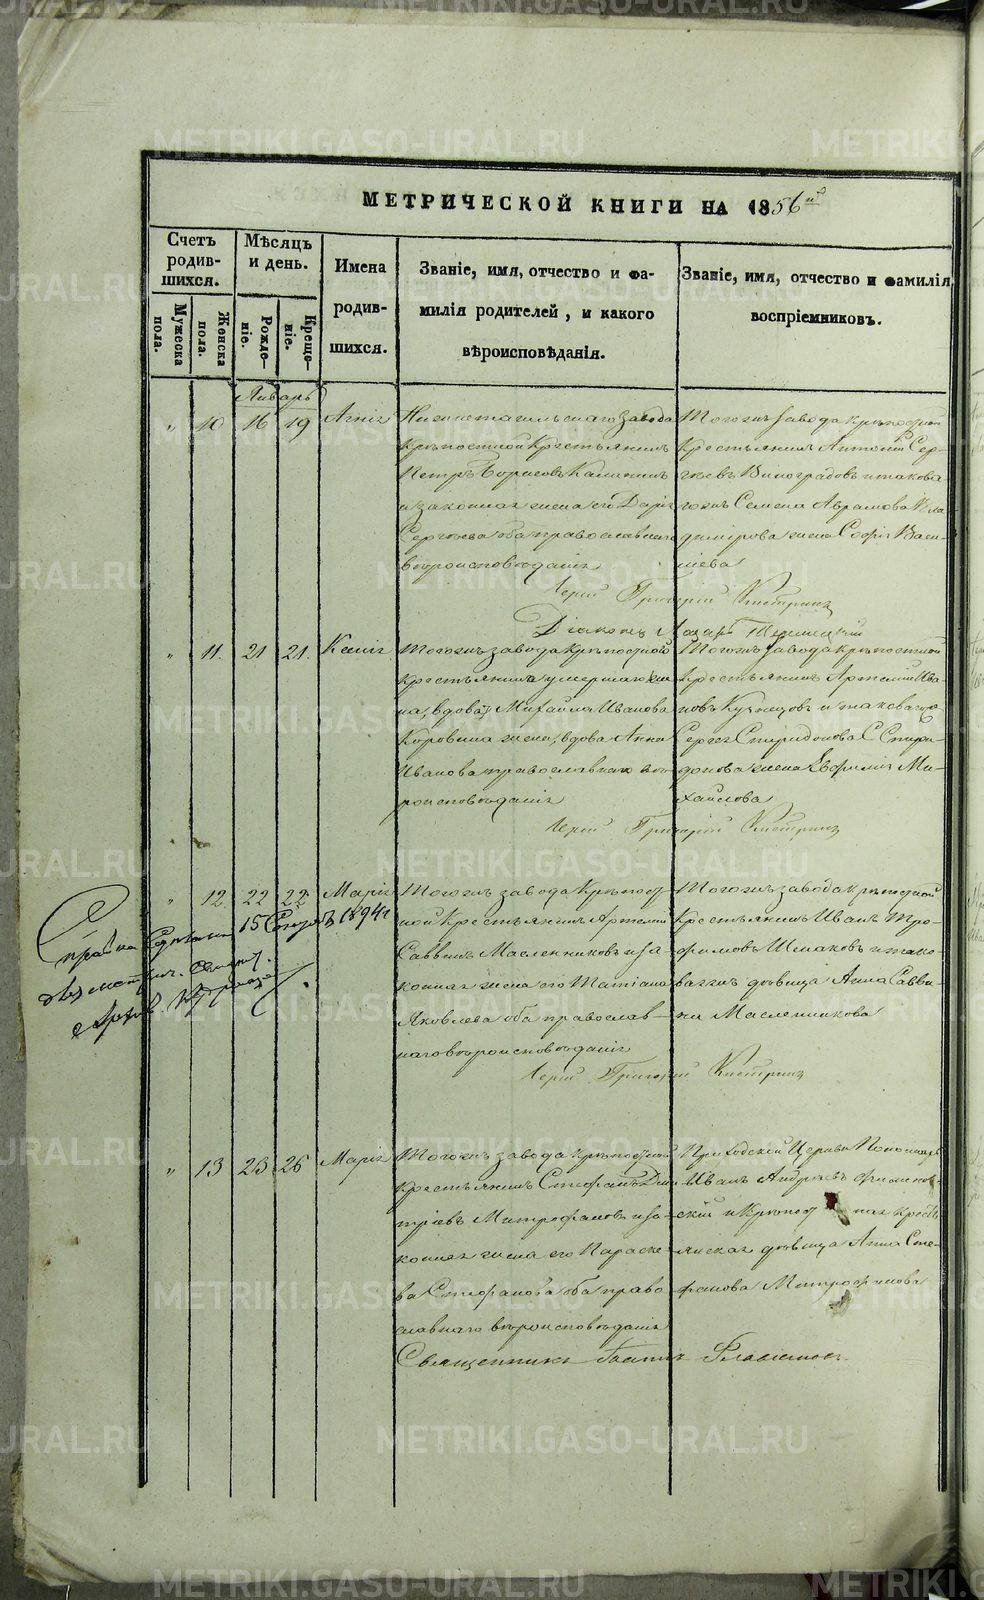 МЕТРИЧЕСКОЙ КНИГИ НА 1856й
Счетъ родив-шихся.
Мужеска пола.
Женска пола.
Мѣсяцъ и день.
Рожде-ніе.
Креще-ніе.
Имена родив-шихся.
Званіе, имя, отчество и фа-
милія родителей, и какого
вѣроисповѣданія.
Званіе, имя, отчество и фамилія
воспріемниковъ.
Январь
" 10 16 19
Нижнетагильскаго завода
крѣпостной крестьянинъ
Петръ Борисовъ Калининъ
и законная жена его Дарія
Сергѣева оба православнаго
вѣроисповѣданія
Тогожъ завода крѣпостной
крестьянинъ Антоній Сер-
гѣевъ Виноградовъ и такова
гожъ Семена Аврамова Вла
димірова жена Софія Васи-
ліева
Іерей Григорій
Діаконъ
" 11. 21 21. Ксенія
Тогожъ завода крѣпостнаго
крестьянина умершаго
вдова Михаила Иванова
Коровина жена, вдова Анна
Иванова православнаго вѣ-
роисповѣданія
Тогожъ завода крѣпостной
крестьянинъ Артемій Ива
новъ Кузнецовъ и таковагоже
Сергея Спиридонова Спири-
донова жена Евфимія Ми-
хайлова
Іерей Григорій
" 12. 22 22. Марія
Тогожъ завода крѣпост-
ной крестьянинъ Артемій
Саввинъ Масленниковъ и за
конная жена его Татіана
Яковлева оба православ-
наго вѣроисповѣданія
Тогожъ завода крѣпостной
крестьянинъ Иванъ Тро-
фимовъ Шмаковъ и тако-
ваяжъ дѣвица Анна Савви-
на Масленникова
Іерей Григорій
Справка сдѣлана 15 1894 г
" 13 23 26 Марія
Тогожъ завода крѣпостной
крестьянинъ Стефанъ Дми-
тріевъ Митрофановъ и за-
конная жена его Параске-
ва Стефанова оба право
славнаго вѣроисповѣданія
Приходской Церкви Пономарь
Иванъ Андреевъ
скій и крѣпостная кресть
янская дѣвица Анна Сте-
фанова Митрофанова
Священникъ Іоаннъ Флавіановъ
METRIKI.GASO-URAL.RU